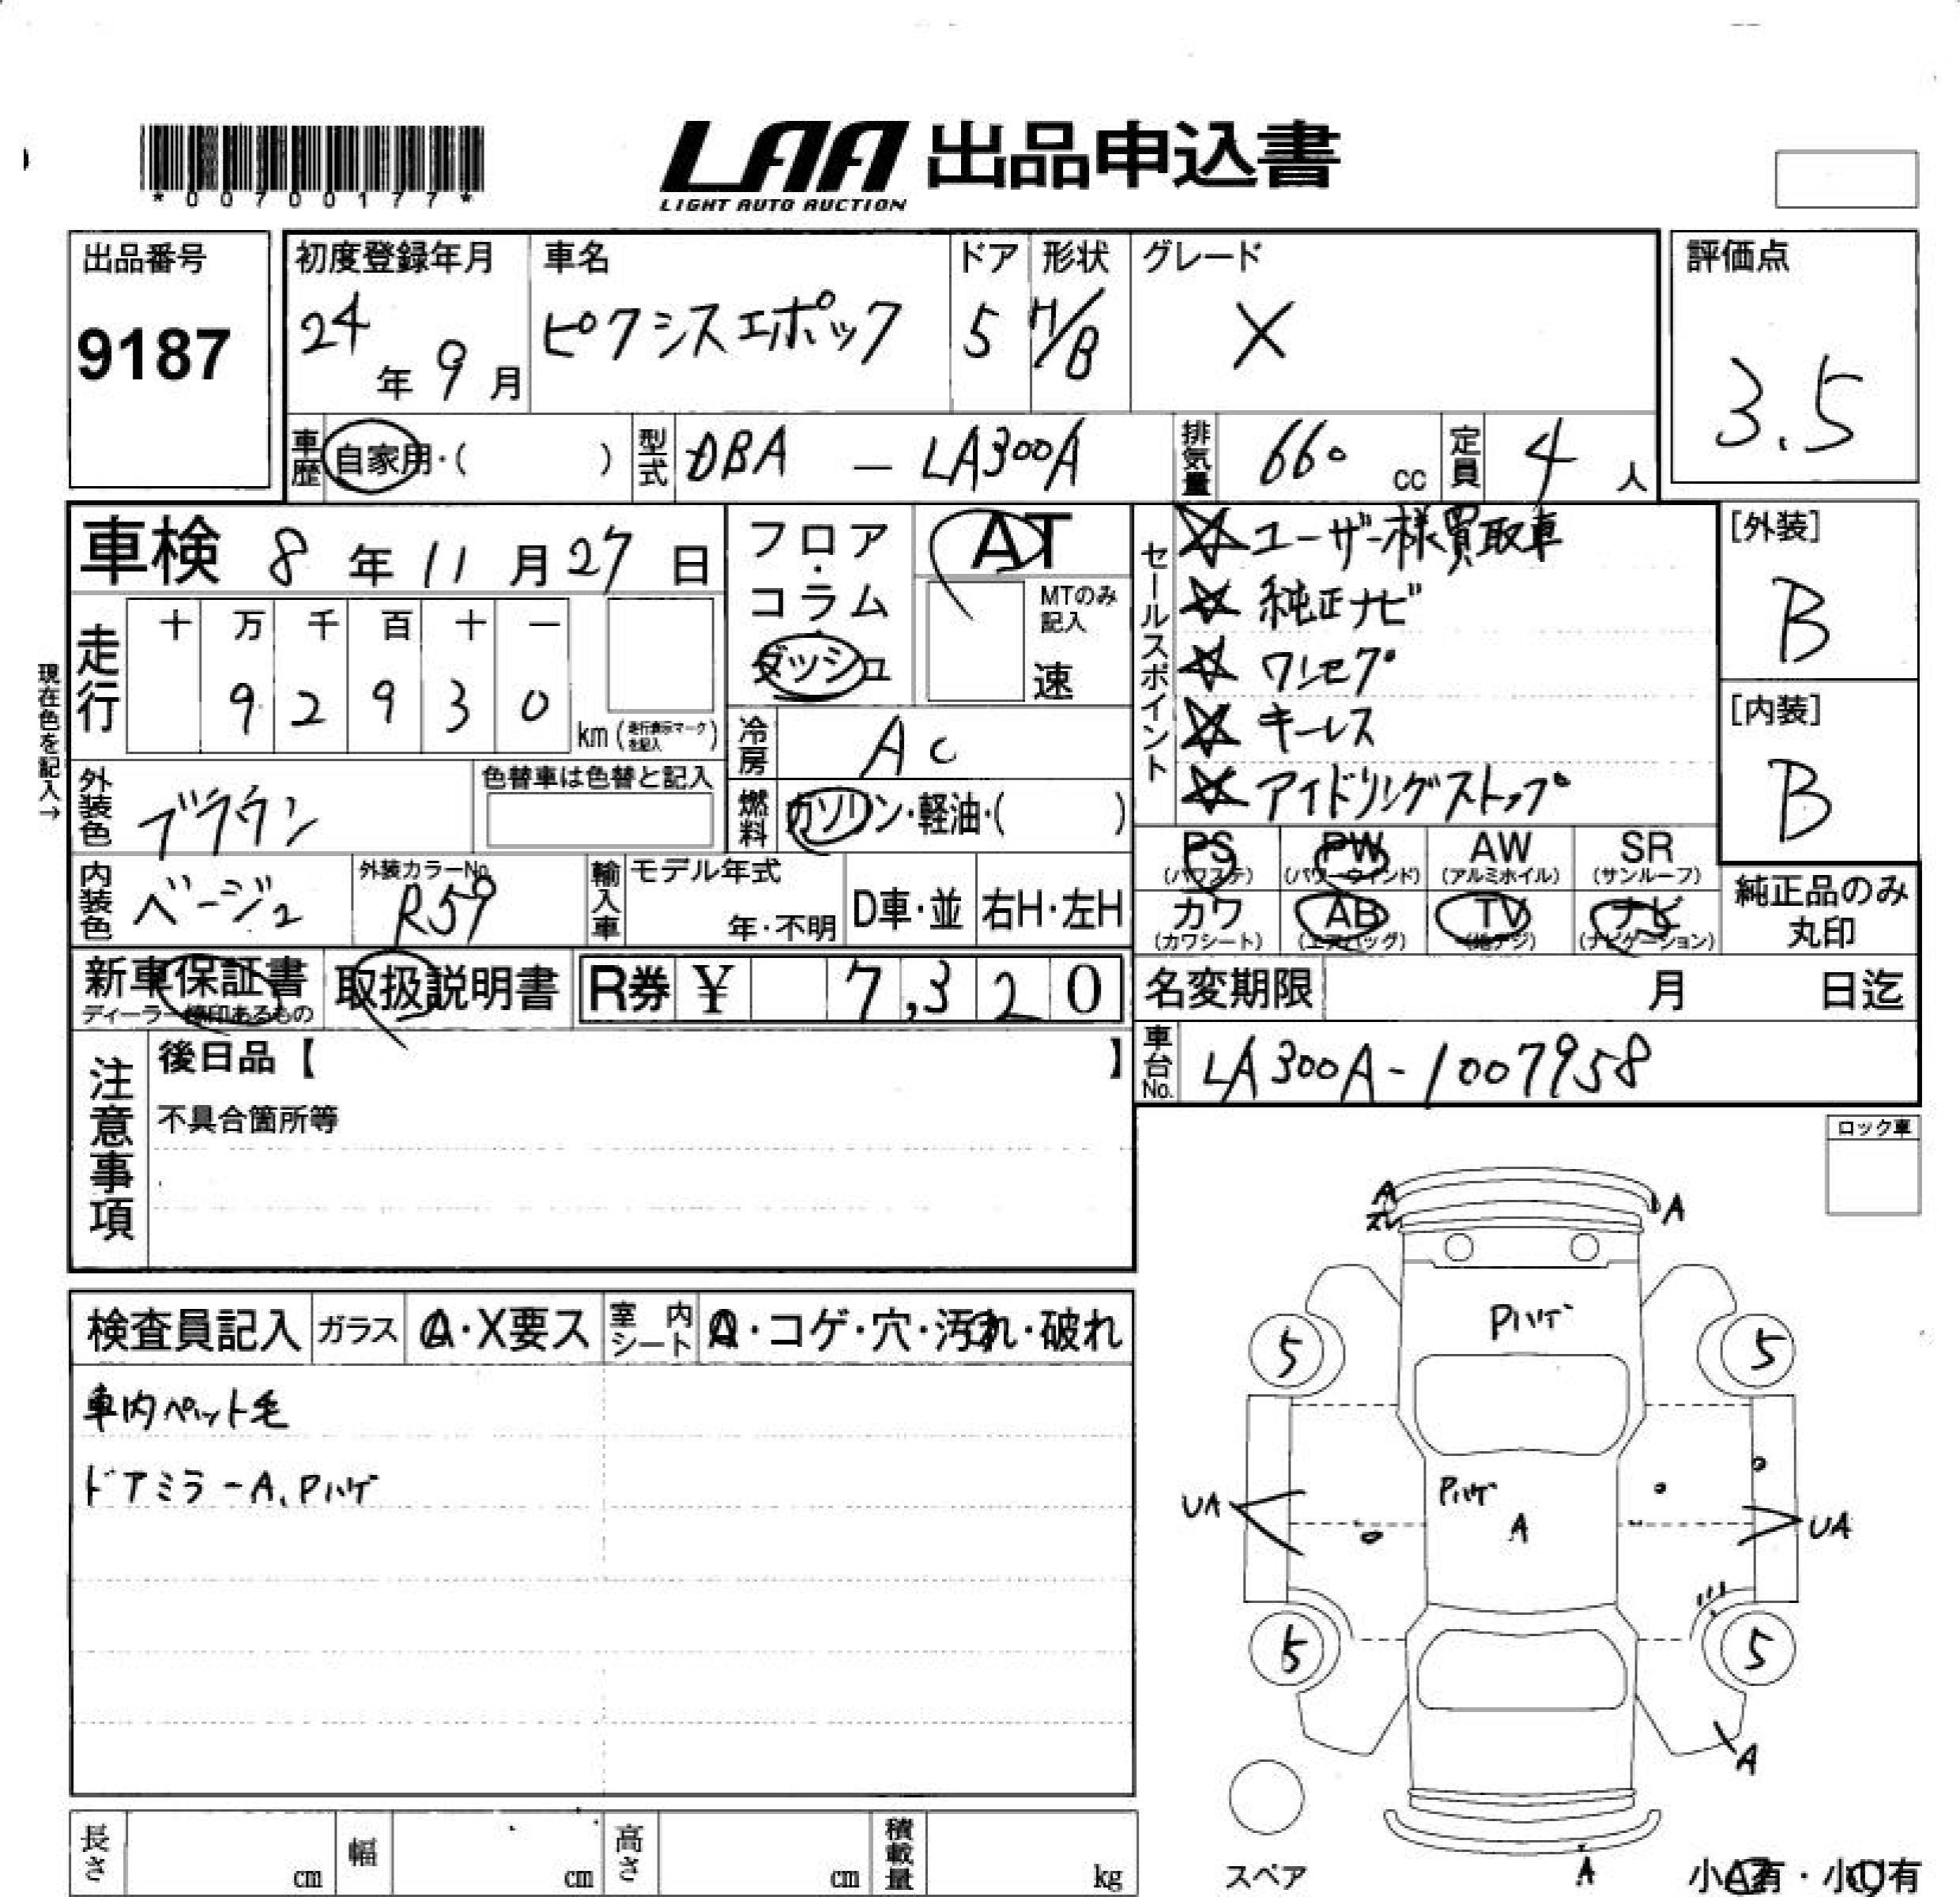 *00700177*
LAA 出品申込書
LIGHT AUTO AUCTION
出品番号
9187
初度登録年月
24年9月
車名
ピクシスエポック
ドア
5
形状
H/B
グレード
X
評価点
3.5
車歴
自家用・( )
型式
DBA － LA300A
排気量
660 cc
定員
4 人
車検 8年11月27日
走行
十 万 千 百 十 一
9 2 9 3 0
km(走行表示マークを記入)
現在色を記入→
外装色
ブラウン
色替車は色替と記入
内装色
ベージュ
外装カラーNo.
R59
フロア・コラム・ダッシュ
AT
MTのみ記入
速
冷房
AC
燃料
ガソリン・軽油・( )
輸入車
モデル年式
年・不明
D車・並
右H・左H
セールスポイント
☆ユーザー様買取車
☆純正ナビ
☆ワンセグ
☆キーレス
☆アイドリングストップ
[外装]
B
[内装]
B
PS
(パワステ)
PW
(パワーウインド)
AW
(アルミホイル)
SR
(サンルーフ)
カワ
(カワシート)
AB
(エアバッグ)
TV
(地デジ)
ナビ
(ナビゲーション)
純正品のみ丸印
新車保証書
ディーラー捺印あるもの
取扱説明書
R券 ¥ 7,320
名変期限 月 日迄
車台No.
LA300A-1007958
注意事項
後日品【 】
不具合箇所等
ロック車
検査員記入
ガラス
A・X要ス
室内シート
A・コゲ・穴・汚れ・破れ
車内ペット毛
ドアミラーA、Pハゲ
A
ズレ
A
Pハゲ
5
5
Pハゲ
A
UA
UA
5
5
A
A
スペア
小A有・小U有
長さ cm
幅 cm
高さ cm
積載量 kg